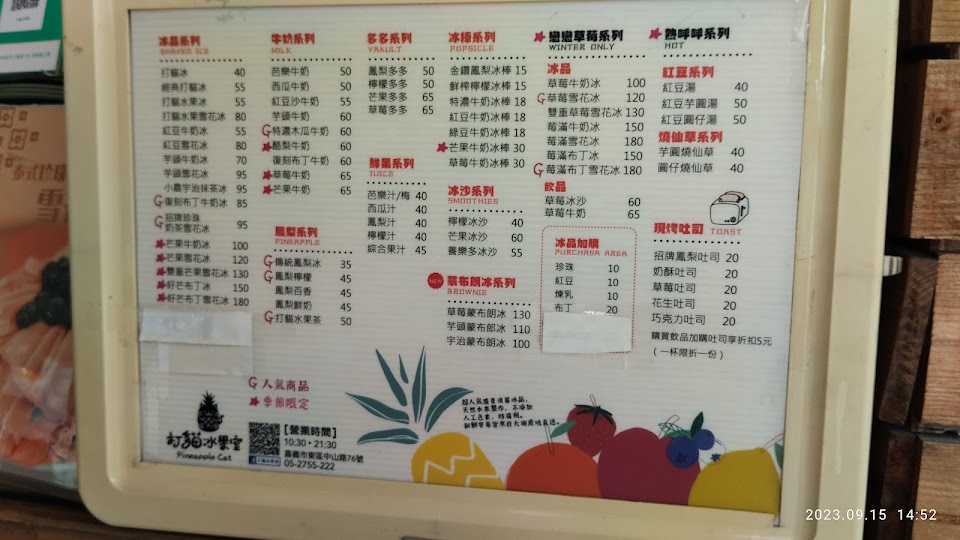 冰品系列
SHAVED ICE
打貓冰 40
經典打貓冰 55
打貓水果冰 55
打貓水果雪花冰 80
紅豆牛奶冰 55
紅豆雪花冰 80
芋頭牛奶冰 70
芋頭雪花冰 95
小農宇治抹茶冰 95
復刻布丁牛奶冰 85
招牌珍珠
奶茶雪花冰 95
芒果牛奶冰 100
芒果雪花冰 120
雙重芒果雪花冰 130
好芒布丁冰 150
好芒布丁雪花冰 180
牛奶系列
MILK
芭樂牛奶 50
西瓜牛奶 50
紅豆沙牛奶 55
芋頭牛奶 60
特濃木瓜牛奶 60
酪梨牛奶 60
復刻布丁牛奶 60
草莓牛奶 65
芒果牛奶 65
鳳梨系列
PINEAPPLE
傳統鳳梨冰 35
鳳梨檸檬 45
鳳梨百香 45
鳳梨鮮奶 45
打貓水果茶 50
多多系列
YAKULT
鳳梨多多 50
檸檬多多 50
芒果多多 65
草莓多多 65
鮮果系列
JUICE
芭樂汁/梅 40
西瓜汁 40
鳳梨汁 40
檸檬汁 40
綜合果汁 45
冰棒系列
POPSICLE
金鑽鳳梨冰棒 15
鮮榨檸檬冰棒 15
特濃牛奶冰棒 18
紅豆牛奶冰棒 18
綠豆牛奶冰棒 18
芒果牛奶冰棒 30
草莓牛奶冰棒 30
冰沙系列
SMOOTHIES
檸檬冰沙 40
芒果冰沙 60
養樂多冰沙 55
NEW 蒙布朗冰系列
BROWNIE
草莓蒙布朗冰 130
芋頭蒙布郎冰 110
宇治蒙布朗冰 100
戀戀草莓系列
WINTER ONLY
冰品
草莓牛奶冰 100
草莓雪花冰 120
雙重草莓雪花冰 130
莓滿牛奶冰 150
莓滿雪花冰 180
莓滿布丁冰 150
莓滿布丁雪花冰 180
飲品
草莓冰沙 60
草莓牛奶 65
冰品加購
PURCHASA AREA
珍珠 10
紅豆 10
煉乳 10
布丁 20
熱呼呼系列
HOT
紅豆系列
紅豆湯 40
紅豆芋圓湯 50
紅豆圓仔湯 50
燒仙草系列
芋圓燒仙草 40
圓仔燒仙草 40
現烤吐司 TOAST
招牌鳳梨吐司 20
奶酥吐司 20
草莓吐司 20
花生吐司 20
巧克力吐司 20
購買飲品加購吐司享折扣5元
(一杯限折一份)
人氣商品
季節限定
打貓冰果室
Pineapple Cat
【營業時間】
10:30・21:30
嘉義市東區中山路76號
05-2755-222
超人氣盛產清暑冰品,
天然水果製作,不添加
人工色素,防腐劑。
新鮮草莓皆來自大湖產地直送。
2023.09.15 14:52